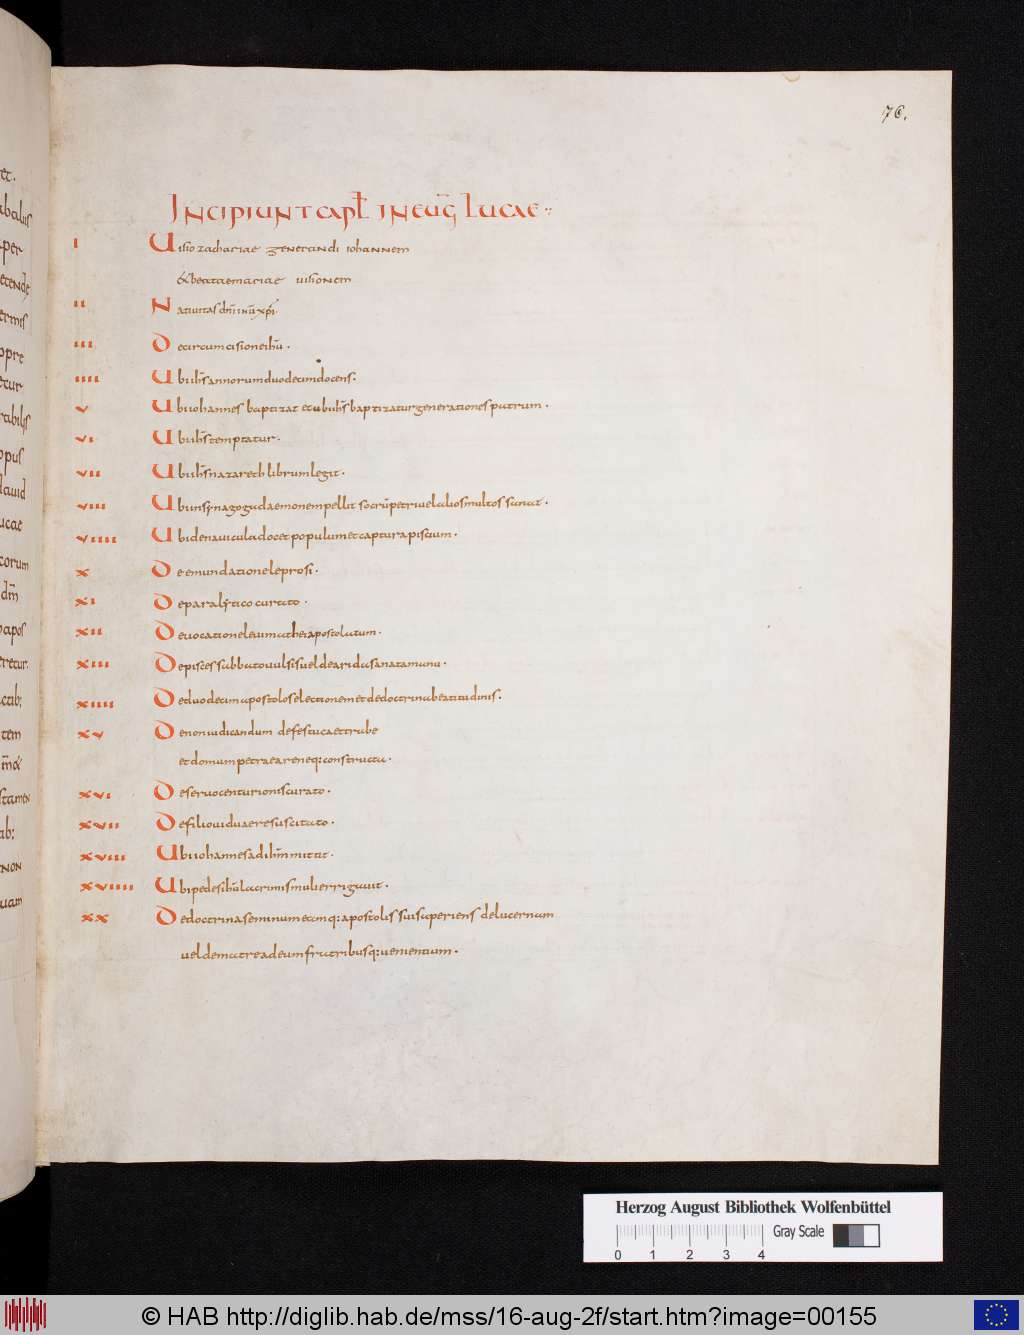 76.
et.
per
ermis
opre
etur
opus
david
ucae
corum
dm̄
apos
tem
NON
uam
INCIPIUNT CAPŁ IN EUḠ LUCAE
I Uisio zachariae generandi iohannem
& beatae mariae uisionem
II Natiuitas dn̄i ihū xp̄i.
III De circumcisione ihū.
IIII Ubi ihs̄ annorum duodecim docens.
V Ubi iohannes baptizat et ubi ihs̄ baptizatur generationes patrum.
VI Ubi ihs̄ temptatur.
VII Ubi ihs̄ nazareth librum legit.
VIII Ubi in synagoga daemonem pellit socrū petri uel alios multos sanat.
VIIII Ubi de nauicula docet populum et captura piscium.
X De emundatione leprosi.
XI De paralytico curato.
XII De uocatione leui mathei apostolatum.
XIII De spicis sabbato uulsis uel de arida sanata manu.
XIIII De duodecim apostolos electionem et de doctrina beatitudinis.
XV De non iudicandum de festuca et trabe
et domum petra et areneq: constructa.
XVI De seruo centurionis curato.
XVII De filio uiduae resuscitato.
XVIII Ubi iohannes ad ihm̄ mittit.
XVIIII Ubi pedes ihū lacrimis mulier rigauit.
XX De doctrina seminum eamq: apostolis suis aperiens de lucernam
uel de matre ad eum fratribusq: uenientium.
Herzog August Bibliothek Wolfenbüttel
Gray Scale
0 1 2 3 4
© HAB http://diglib.hab.de/mss/16-aug-2f/start.htm?image=00155